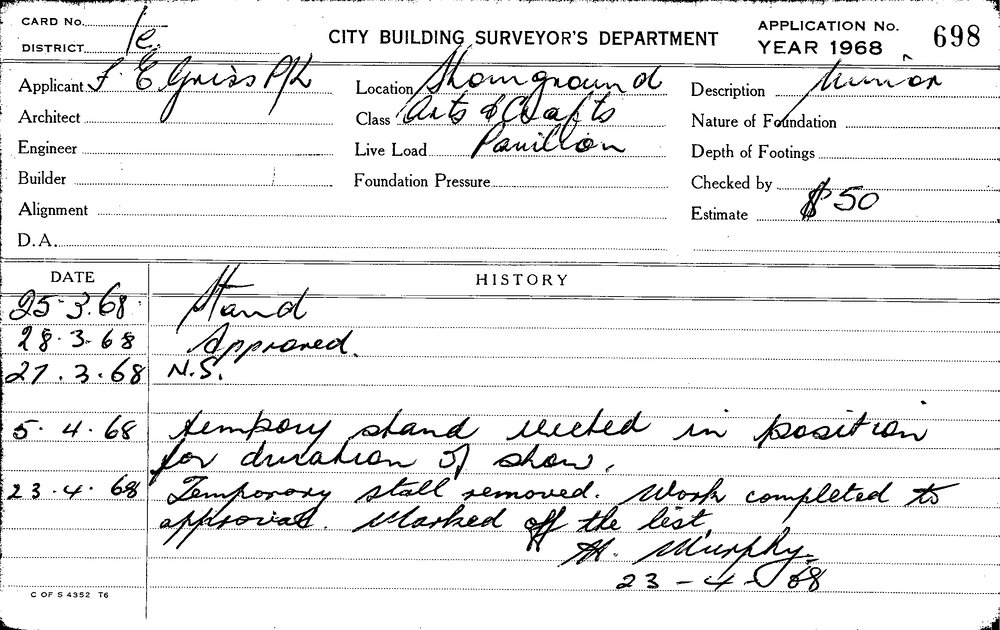 CARD No. 1e
DISTRICT
CITY BUILDING SURVEYOR'S DEPARTMENT
APPLICATION No. 698
YEAR 1968
Applicant F. E. Griss P/L
Location Showground
Description Minor
Architect
Class Arts & Crafts
Nature of Foundation
Engineer
Live Load Pavilion
Depth of Footings
Builder
Foundation Pressure
Checked by
Alignment
Estimate $50
D.A.
DATE HISTORY
25.3.68. Stand
28.3.68 Approved.
27.3.68 N.S.
5.4.68 tempory stand erected in position
for duration of show.
23.4.68 Temporary stall removed. Work completed to
approval. Marked off the list.
Murphy.
23-4-68
C OF S 4352 T6